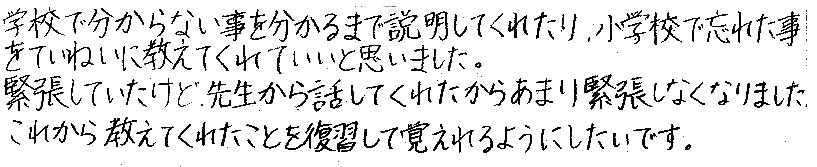 学校で分からない事を分かるまで説明してくれたり、小学校で忘れた事
をていねいに教えてくれていいと思いました。
緊張していたけど、先生から話してくれたからあまり緊張しなくなりました
これから教えてくれたことを復習して覚えれるようにしたいです。